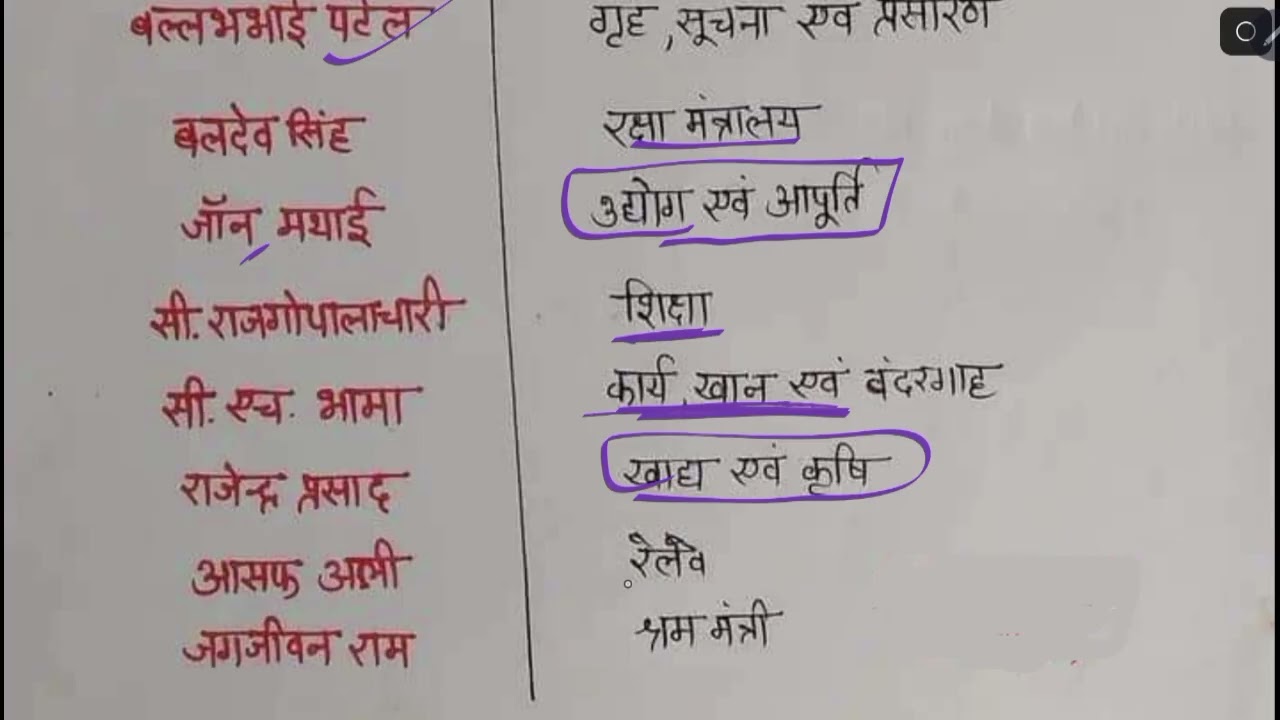 बल्लभभाई पटेल गृह, सूचना एवं प्रसारण
बलदेव सिंह रक्षा मंत्रालय
जॉन मथाई उद्योग एवं आपूर्ति
सी. राजगोपालाचारी शिक्षा
सी. एच. भामा कार्य, खान एवं बंदरगाह
राजेन्द्र प्रसाद खाद्य एवं कृषि
आसफ अली रेलवे
जगजीवन राम श्रम मंत्री